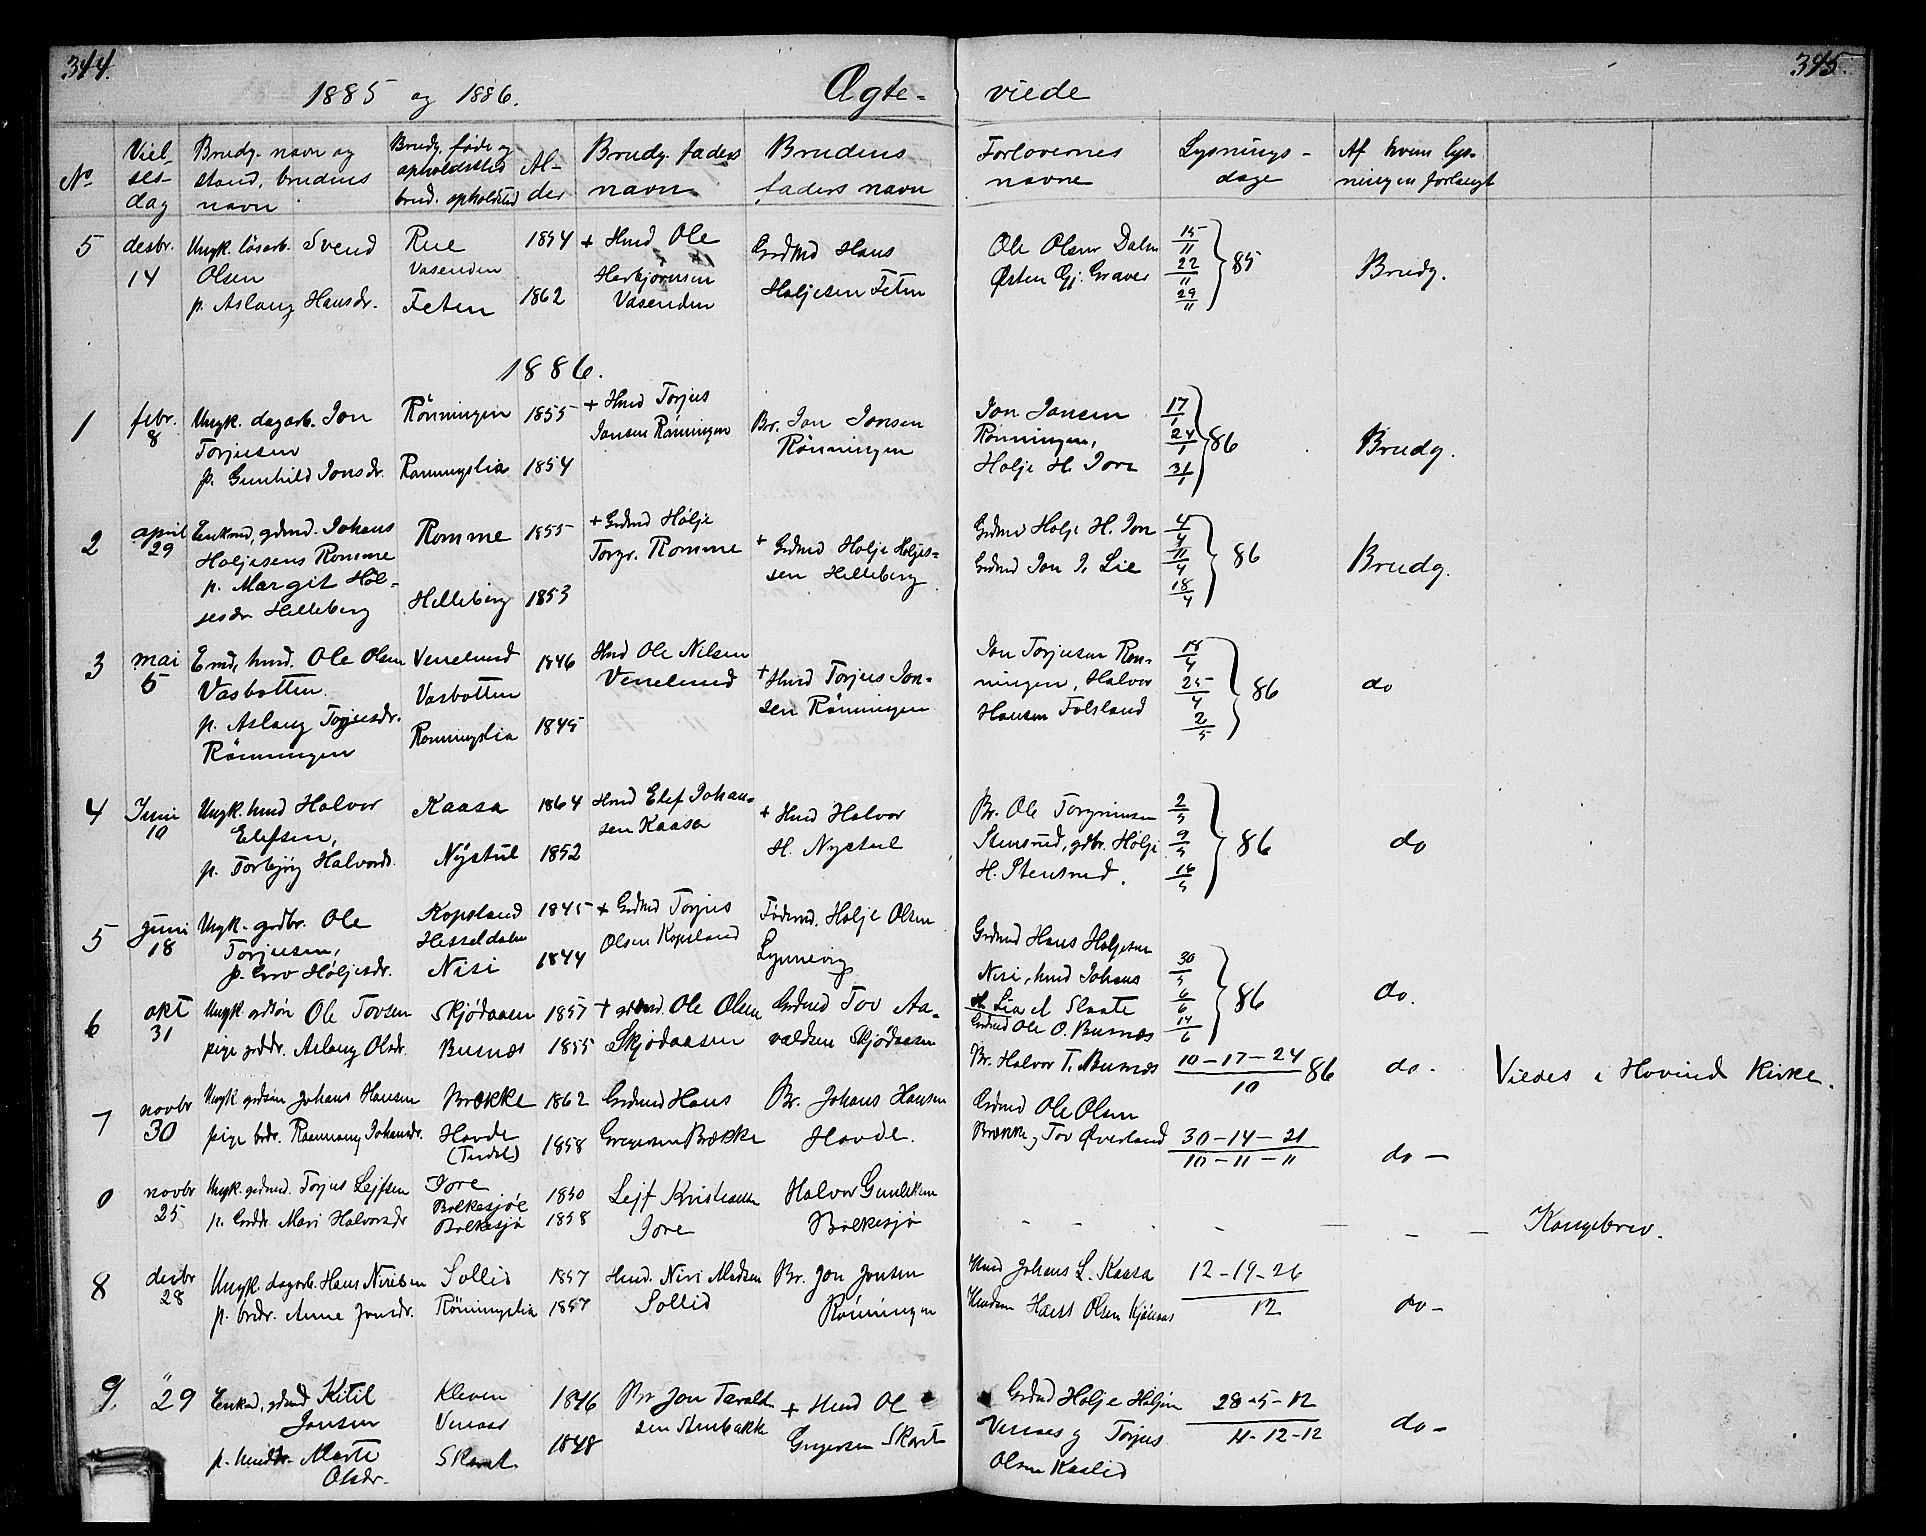 344.
345.
1885 og 1886.
Ægte-
viede
No
Viel-
ses-
dag
Brudg. navn og
stand, brudens
navn
Brudg. føde og
opholdssted
brud. opholdsted
Al-
der
Brudg. faders
navn
Brudens
faders navn
Forlovernes
navne
Lysnings-
dage
Af hvem lys-
ningen forlangt
5
desbr.
14
Ungk. løsarb. Svend
Olsen
p. Aslaug Hansdr.
Rue
Vasenden
Feten
1854
1862
+ Hmd Ole
Herbjørnsen
Vasenden
Grdmd Hans
Holjesen Feten
Ole Olsen Dalen
Østen Gj. Graver
15/11
22/11
29/11
85
Brudg.
1886.
1
febr.
8
Ungk. dagarb. Jon
Torjusen
p. Gunhild Jonsdr.
Rönningen
Rönningslia
1855
1854
+ Hmd Torjus
Jonsen Rönningen
Br. Jon Jonsen
Rönningen
Jon Jonsen
Rönningen,
Holje H. Jore
17/1
24/1
31/1
86
Brudg.
2
april
29
Enkmd, grdmd. Johans
Holjesens Romme
p. Margit Hol-
jesdr Helleberg
Romme
Helleberg
1855
1853
+ Grdmd Holje
Torgr. Romme
+ Grdmd Holje Holjes-
sen Helleberg
Grdmd Holje H. Jore
Grdmd Jon J. Lie
4/4
11/4
18/4
86
Brudg.
3
mai
5
Emd, hmd. Ole Olsen
Vasbotten
p. Aslaug Torjusdr.
Rönningen
Venelund
Vasbotten
Rönningslia
1846
1845
Hmd Ole Nilsen
Venelund
+ Hmd Torjus Jon-
sen Rönningen
Jon Torjusen Rön-
ningen, Halvor
Hansen Folsland
18/4
25/4
2/5
86
do
4
Juni
10
Ungk. hmd Halvor
Elefsen,
p. Torbjørg Halvorsdr.
Kaasa
Nystul
1864
1852
Hmd Elef Johan-
sen Kaasa
+ Hmd Halvor
H. Nystul
Br. Ole Torgrimsen
Stensrud, gdbr. Holje
H. Stensrud.
2/5
9/5
16/5
86
do
5
juni
18
Ungk. grdbr. Ole
Torjusen,
p. Gro Holjesdr.
Kopsland
Hesseldalen
Nisi
1845
1844
+ Grdmd Torjus
Olsen Kopsland
Födermd. Holje Olsen
Lynnevig
Grdmd Hans Holjesen
Nisi, hmd Johans
Slaate
30/5
6/6
14/6
86
do.
6
okt
31
Ungk. grdsön Ole Tovsen
pige grddr. Aslaug Olsdr.
Skjödaasen
Busnæs
1857
1855
+ grdmd Ole Olsen
Skjödaasen
Grdmd Tov Aa-
valdsen Skjödaasen
Grdmd Ole O. Busnæs
Br. Halvor T. Busnæs
10-17-24
10
86
do.
Viedes i Hovind Kirke.
7
novbr
30
Ungk grdsön Johans Hansen
pige brdr. Johansdr.
Brække
Hovde
(Tudal)
1862
1858
Grdmd Hans
Gregersen Brække
Br. Johans Hansen
Hovde.
Grdmd Ole Olsen
Brække og Tov Överland
30-14-21
10-11-11
do-
0
novbr
25
Ungk. grdmd. Torjus Lejfsen
p. Grddr. Mari Halvorsdr
Jore
Bolkesjöe
Bolkesjö
1850
1858
Lejf Kristensen
Jore
Halvor Gunleksen
Bolkesjö
Kongebrev.
8
desbr
28
Ungk. dagarb. Hans Nirisen
p. brdr. Anne Jonsdr.
Sollid
Rönningslia
1857
1857
Hmd. Niri Madsen
Sollid
Br. Jon Jonsen
Rönningen
Hmd Johans L. Kaasa
Hans Olsen
12-19-26
12
do-
9.
" 29
Enkmd, grdmd Kitil
Jonsen
p. hmddr. Marte
Olsdr.
Kleven
Venaas
Skaret.
1846
1848
Br Jon Tarald-
sen
+ Hmd Ole
Gregersen Skaret
Grdmd Holje Holjesen
Venaas og Torjus
Olsen Kaslid
28-5-12
11-12-12
do-